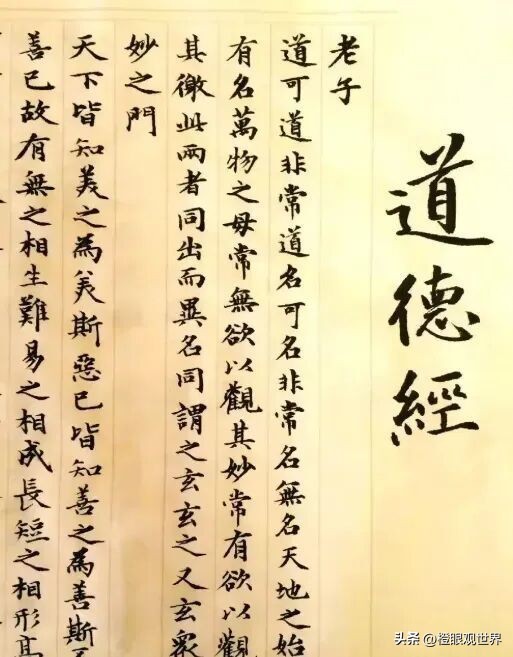 道德經
老子
道可道非常道名可名非常名無名天地之始
有名萬物之母常無欲以觀其妙常有欲以觀
其徼此兩者同出而異名同謂之玄玄之又玄衆
妙之門
天下皆知美之為美斯惡已皆知善之為善斯
善已故有無之相生難易之相成長短之相形高
头条 @橙眼观世界